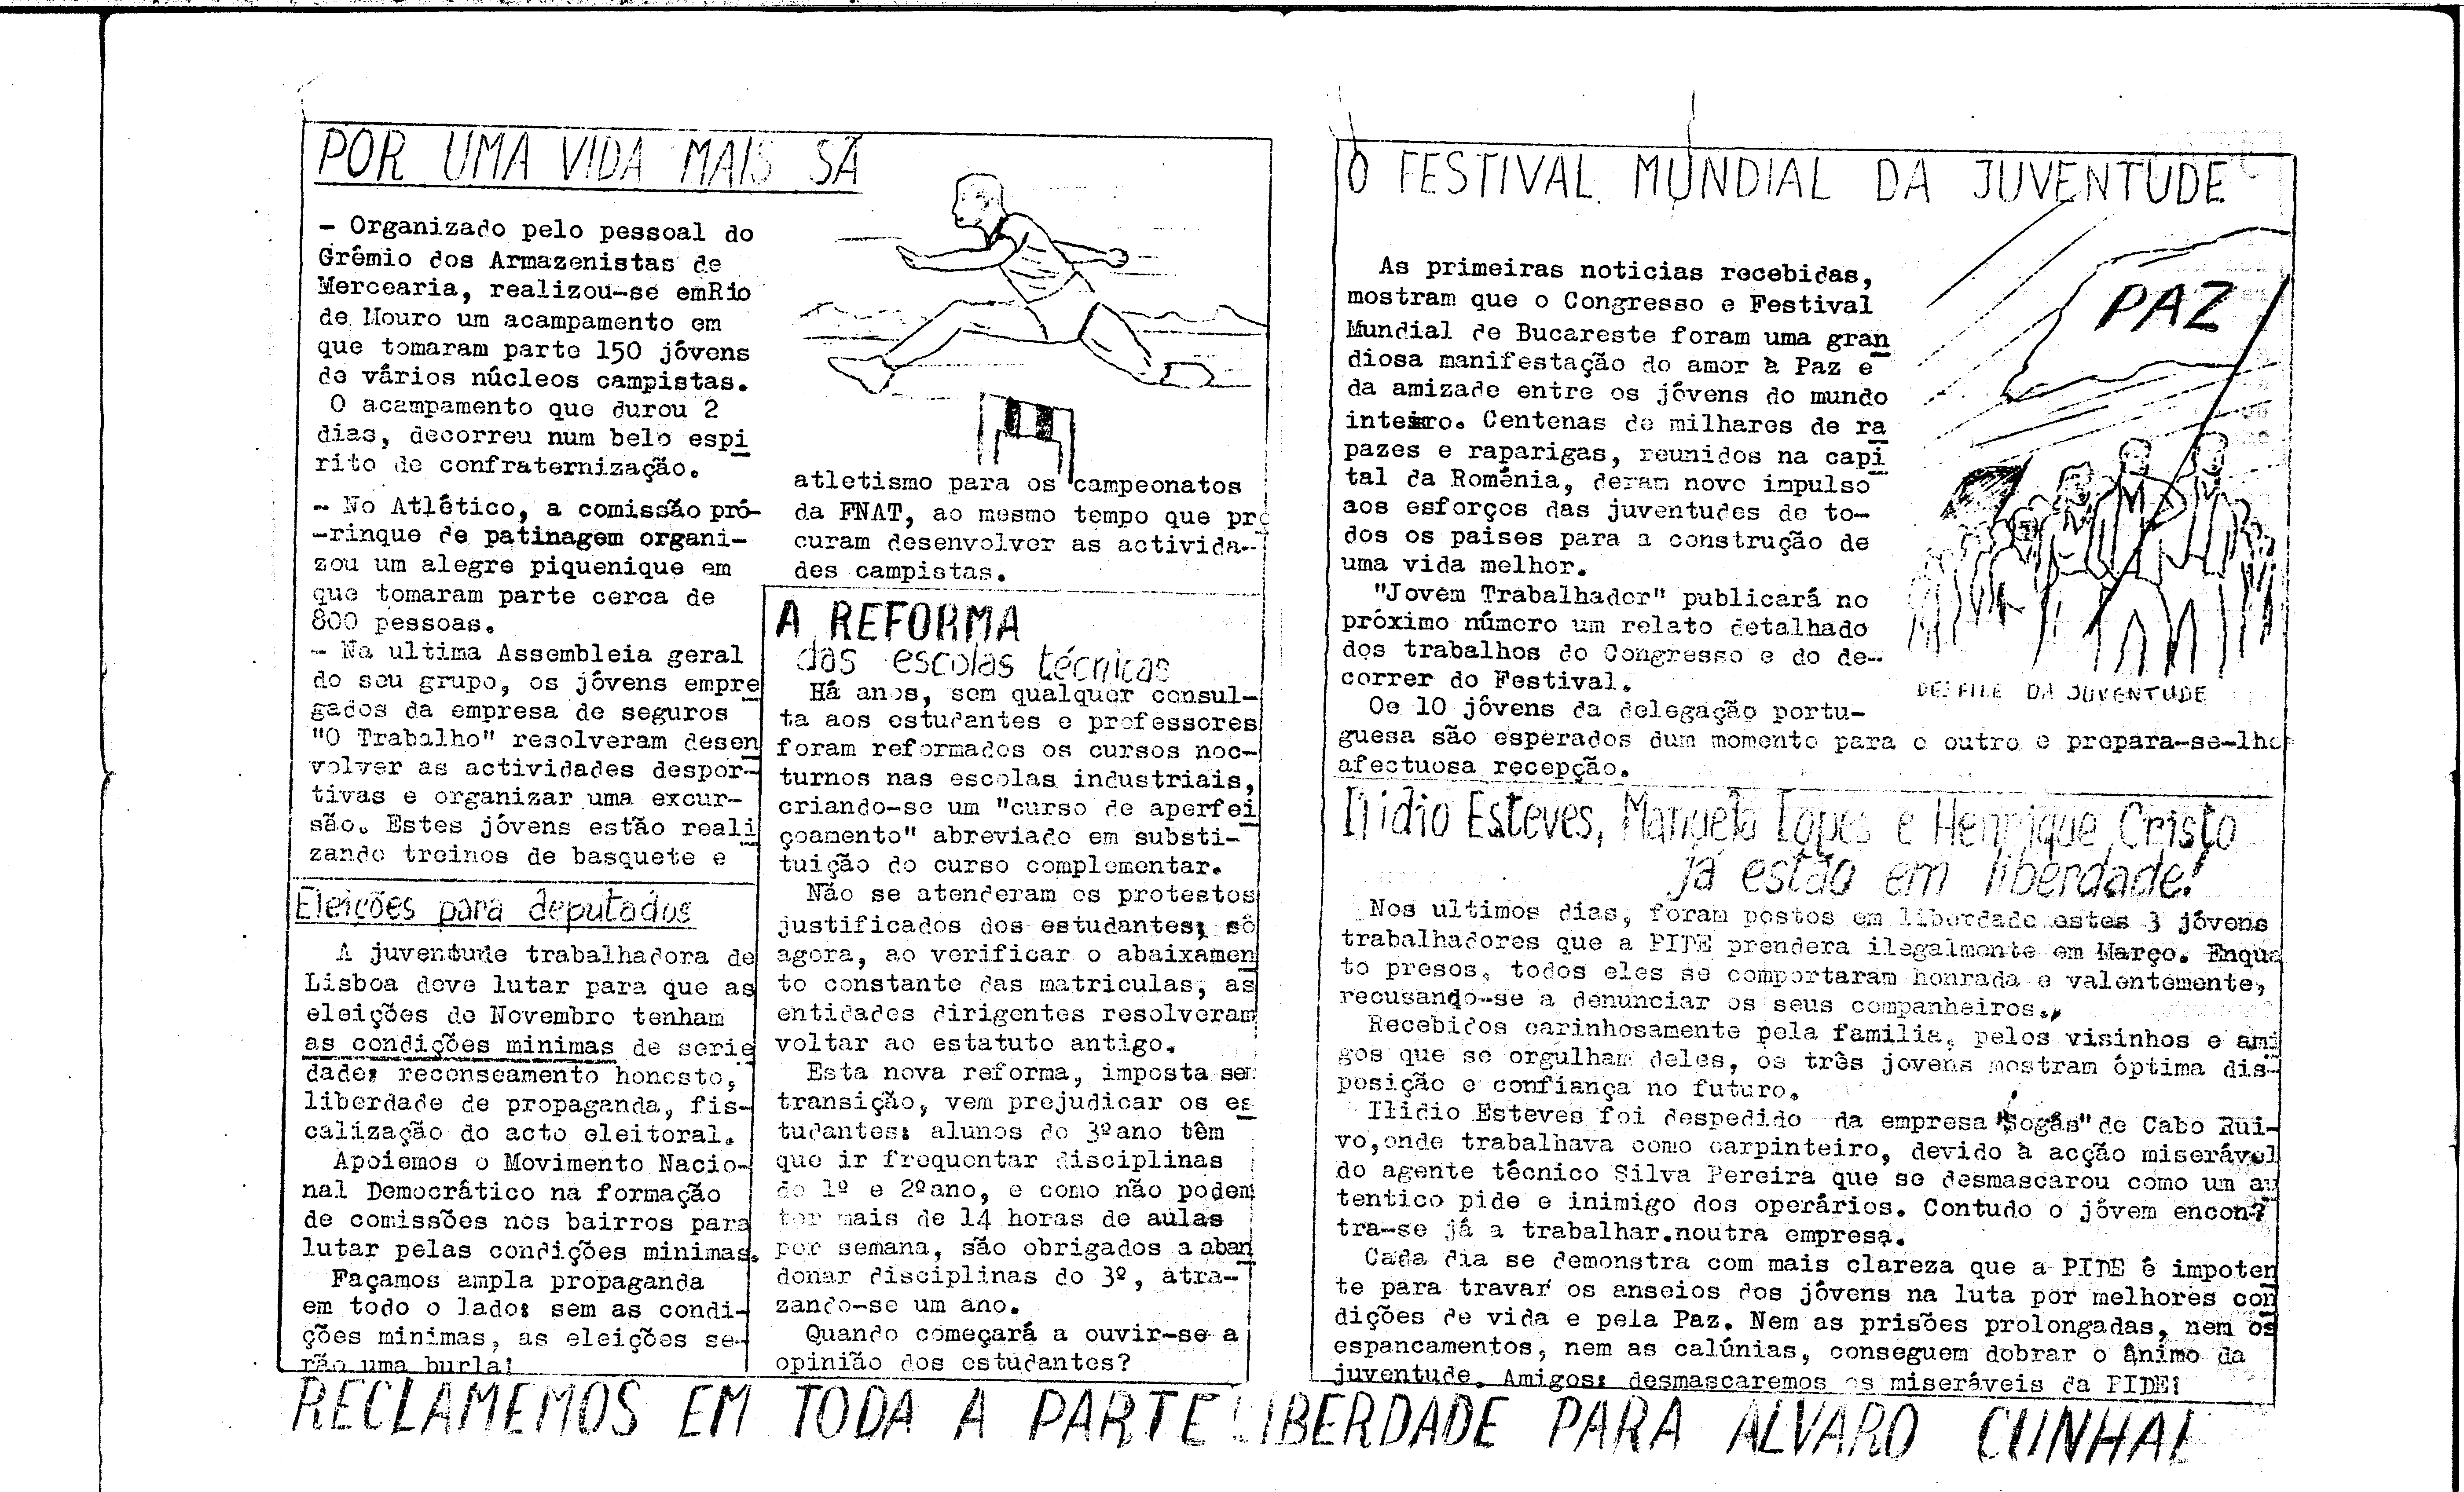 POR UMA VIDA MAIS SÃ
- Organizado pelo pessoal do
Grêmio dos Armazenistas de
Mercearia, realizou-se emRio
de Mouro um acampamento em
que tomaram parte 150 jóvens
de vários núcleos campistas.
O acampamento que durou 2
dias, decorreu num belo espi
rito de confraternização.
- No Atlético, a comissão pró-
-rinque de patinagem organi-
zou um alegre piquenique em
que tomaram parte cerca de
800 pessoas.
- Na ultima Assembleia geral
do seu grupo, os jóvens empre
gados da empresa de seguros
"O Trabalho" resolveram desen
volver as actividades despor-
tivas e organizar uma excur-
são. Estes jóvens estão reali
zando treinos de basquete e
atletismo para os campeonatos
da FNAT, ao mesmo tempo que pro
curam desenvolver as activida-
des campistas.
Eleições para deputados
A juventude trabalhadora de
Lisboa deve lutar para que as
eleições de Novembro tenham
as condições minimas de serie
dade: recenseamento honesto,
liberdade de propaganda, fis-
calização do acto eleitoral.
Apoiemos o Movimento Nacio-
nal Democrático na formação
de comissões nos bairros para
lutar pelas condições minimas.
Façamos ampla propaganda
em todo o lado: sem as condi-
ções minimas, as eleições se-
rão uma burla!
A REFORMA
das escolas técnicas
Há anos, sem qualquer consul-
ta aos estudantes e professores
foram reformados os cursos noc-
turnos nas escolas industriais,
criando-se um "curso de aperfei
çoamento" abreviado em substi-
tuição do curso complementar.
Não se atenderam os protestos
justificados dos estudantes; só
agora, ao verificar o abaixamen
to constante das matriculas, as
entidades dirigentes resolveram
voltar ao estatuto antigo.
Esta nova reforma, imposta sem
transição, vem prejudicar os es
tudantes: alunos do 3ºano têm
que ir frequentar disciplinas
do 1º e 2ºano, e como não podem
ter mais de 14 horas de aulas
por semana, são obrigados a aban
donar disciplinas do 3º, atra-
zando-se um ano.
Quando começará a ouvir-se a
opinião dos estudantes?
O FESTIVAL MUNDIAL DA JUVENTUDE
As primeiras noticias recebidas,
mostram que o Congresso e Festival
Mundial de Bucareste foram uma gran
diosa manifestação do amor à Paz e
da amizade entre os jóvens do mundo
inteiro. Centenas de milhares de ra
pazes e raparigas, reunidos na capi
tal da Roménia, deram novo impulso
aos esforços das juventudes de to-
dos os paises para a construção de
uma vida melhor.
"Jovem Trabalhador" publicará no
próximo número um relato detalhado
dos trabalhos do Congresso e do de-
correr do Festival.
Os 10 jóvens da delegação portu-
guesa são esperados dum momento para o outro e prepara-se-lhe
afectuosa recepção.
PAZ
DESFILE DA JUVENTUDE
Ilidio Esteves, Manuela Lopes e Henrique Cristo
já estão em liberdade!
Nos ultimos dias, foram postos em liberdade estes 3 jóvens
trabalhadores que a PIDE prendera ilegalmente em Março. Enqua
to presos, todos eles se comportaram honrada e valentemente,
recusando-se a denunciar os seus companheiros.
Recebidos carinhosamente pela familia, pelos visinhos e ami
gos que se orgulham deles, os três jovens mostram óptima dis-
posição e confiança no futuro.
Ilidio Esteves foi despedido da empresa "Sogás" de Cabo Rui-
vo,onde trabalhava como carpinteiro, devido à acção miserável
do agente técnico Silva Pereira que se desmascarou como um au
tentico pide e inimigo dos operários. Contudo o jóvem encon?
tra-se já a trabalhar.noutra empresa.
Cada dia se demonstra com mais clareza que a PIDE é impoten
te para travar os anseios dos jóvens na luta por melhores con
dições de vida e pela Paz. Nem as prisões prolongadas, nem os
espancamentos, nem as calúnias, conseguem dobrar o ânimo da
juventude. Amigos: desmascaremos os miseráveis da PIDE!
RECLAMEMOS EM TODA A PARTE LIBERDADE PARA ALVARO CUNHAL